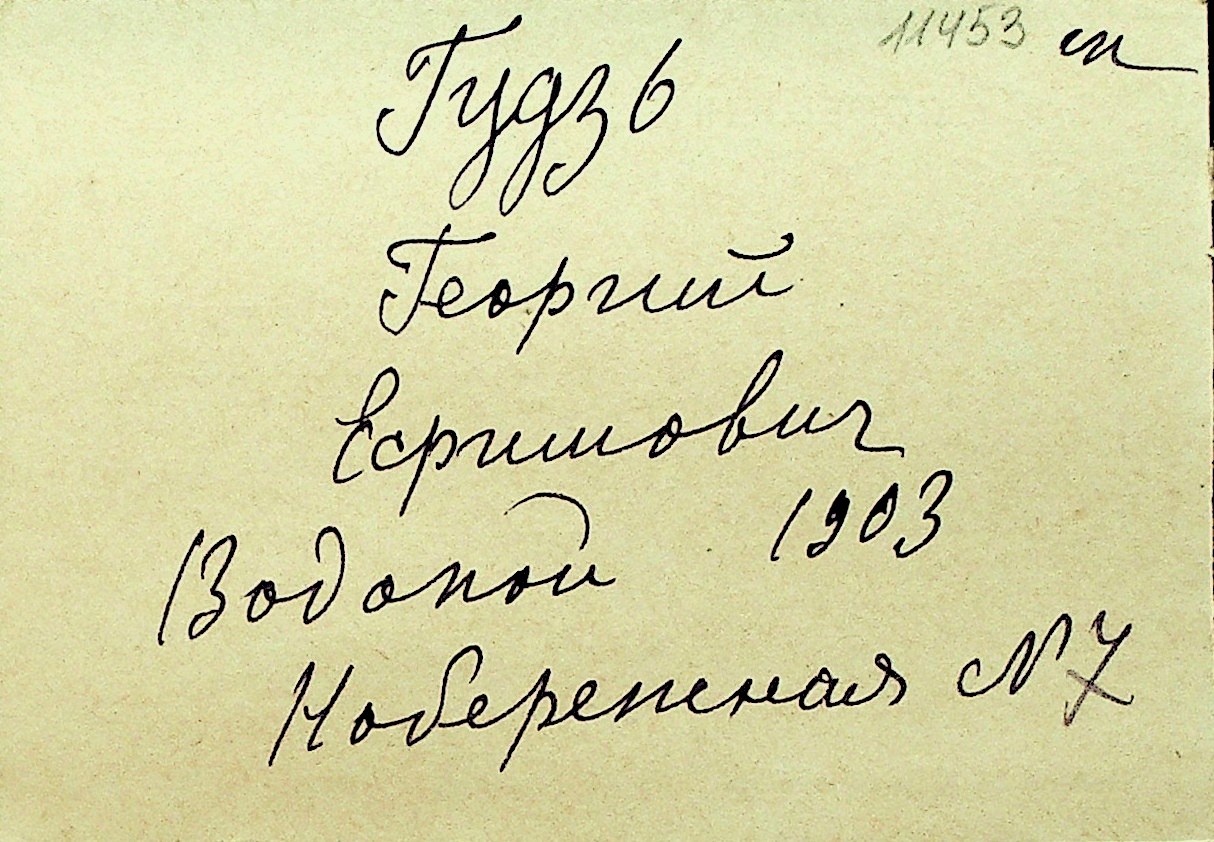 11453 сп
Гудзь
Георгий
Ефимович
1903
Водопой
Набережная № 7